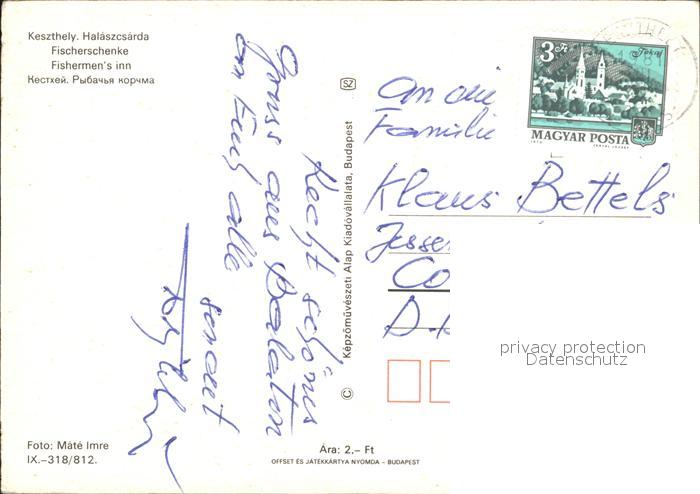 Keszthely. Halászcsárda
Fischerschenke
Fishermen's inn
Кестхей. Рыбачья корчма
Recht schönes
Gruss aus Balaton
an Euch alle
sendet
Foto: Máté Imre
IX.–318/812.
Ára: 2,– Ft
OFFSET ÉS JÁTÉKKÁRTYA NYOMDA – BUDAPEST
© Képzőművészeti Alap Kiadóvállalata, Budapest
SZ
3 Ft Tokaj
MAGYAR POSTA
An die
Familie
Klaus Bettels
Jesse
Co
D-
privacy protection
Datenschutz